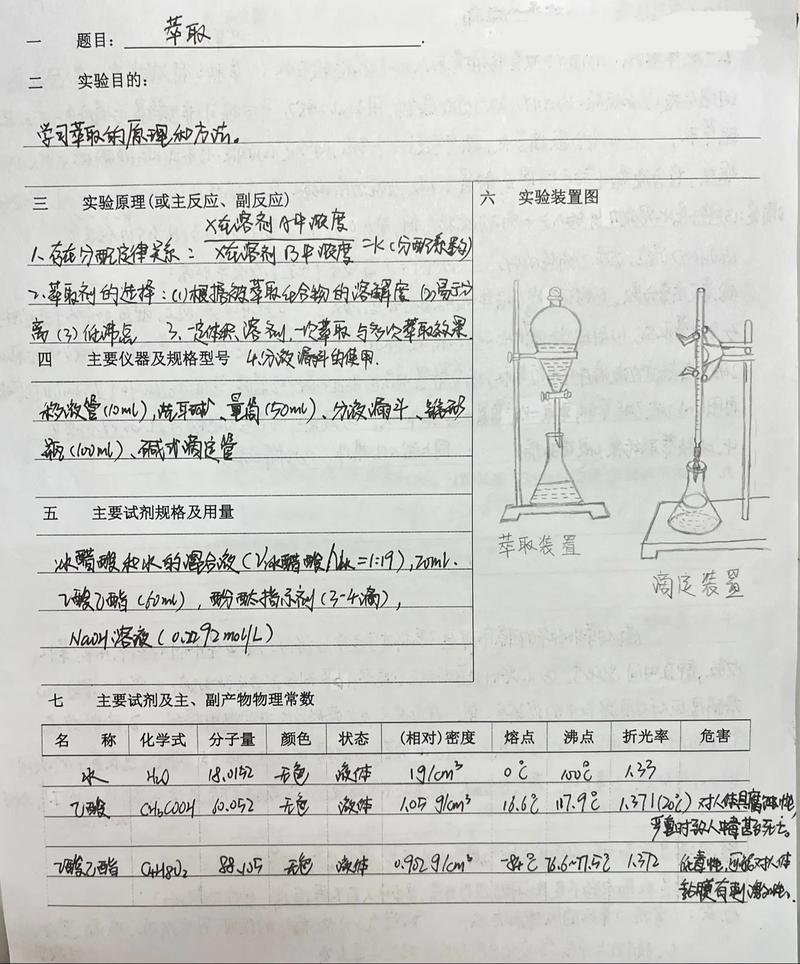 一 题目：萃取.
二 实验目的：
学习萃取的原理和方法。
三 实验原理(或主反应、副反应)
1、存在分配定律关系：X在溶剂A中浓度/X在溶剂B中浓度=K(分配系数)
2、萃取剂的选择：(1)根据被萃取化合物的溶解度 (2)易于分
离 (3)低沸点 3、一定体积溶剂，一次萃取与多次萃取效果.
四 主要仪器及规格型号 4.分液漏斗的使用.
移液管(10ml)，洗耳球、量筒(50ml)、分液漏斗、锥形
瓶(100ml)、碱式滴定管
五 主要试剂规格及用量
冰醋酸和水的混合液(V冰醋酸/V水=1:19)，20ml.
乙酸乙酯(60ml)，酚酞指示剂(3-4滴)，
NaOH溶液(0.2292mol/L)
六 实验装置图
萃取装置
滴定装置
七 主要试剂及主、副产物物理常数
名 称 化学式 分子量 颜色 状态 (相对)密度 熔点 沸点 折光率 危害
水 H₂O 18.0152 无色 液体 1g/cm³ 0℃ 100℃ 1.33
乙酸 CH₃COOH 60.052 无色 液体 1.05 g/cm³ 16.6℃ 117.9℃ 1.371(20℃) 对人体具腐蚀性，
严重时致人中毒甚至死亡。
乙酸乙酯 C4H8O2 88.105 无色 液体 0.902 g/cm³ -84℃ 76.6~77.5℃ 1.372 低毒性，可能对人体
黏膜有刺激性.